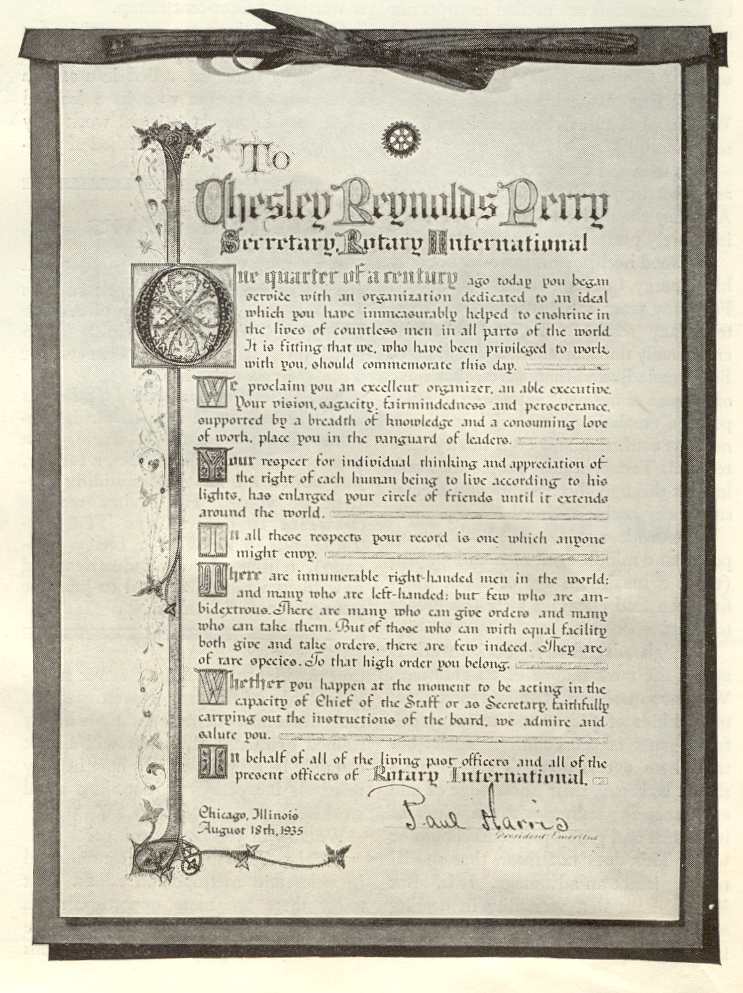 To
Chesley Reynolds Perry
Secretary, Rotary International
One quarter of a century ago today you began
service with an organization dedicated to an ideal
which you have immeasurably helped to enshrine in
the lives of countless men in all parts of the world.
It is fitting that we, who have been privileged to work
with you, should commemorate this day.
We proclaim you an excellent organizer, an able executive.
Your vision, sagacity, fairmindedness and perseverance,
supported by a breadth of knowledge and a consuming love
of work, place you in the vanguard of leaders.
Your respect for individual thinking and appreciation of
the right of each human being to live according to his
lights, has enlarged your circle of friends until it extends
around the world.
In all these respects your record is one which anyone
might envy.
There are innumerable right-handed men in the world;
and many who are left-handed; but few who are am-
bidextrous. There are many who can give orders and many
who can take them. But of those who can with equal facility
both give and take orders, there are few indeed. They are
of rare species. To that high order you belong.
Whether you happen at the moment to be acting in the
capacity of Chief of the Staff or as Secretary, faithfully
carrying out the instructions of the board, we admire and
salute you.
In behalf of all of the living past officers and all of the
present officers of Rotary International.
Chicago, Illinois
August 18th, 1935
Paul Harris
President Emeritus